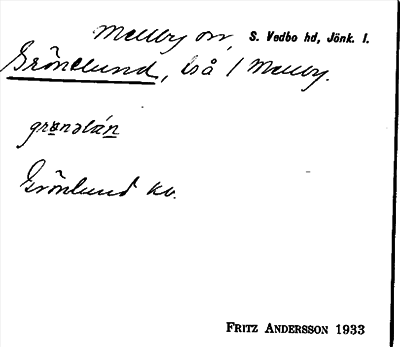 Mellby sn, S. Vedbo hd, Jönk. l.
Grönelund, i Mellby.
Grönlund kb.
FRITZ ANDERSSON 1933